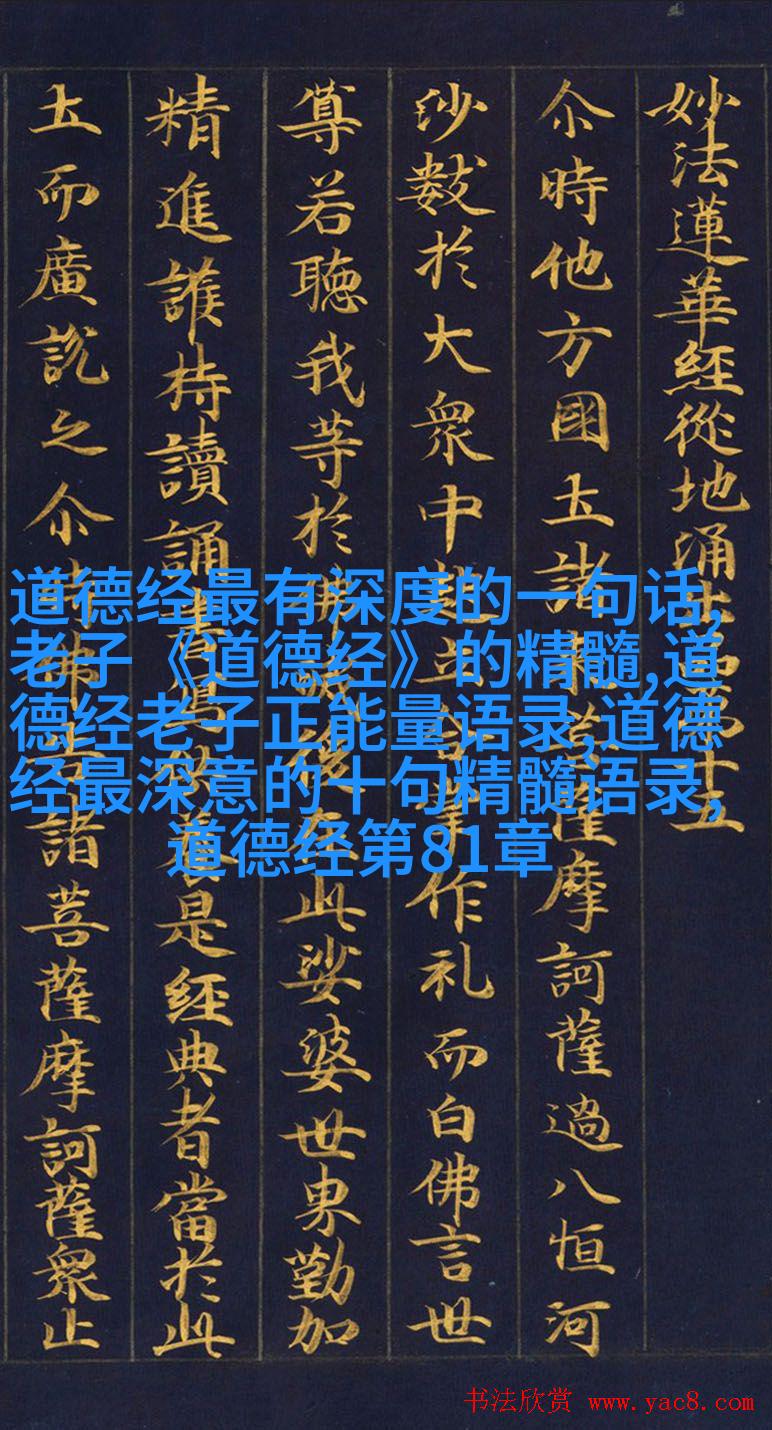 妙法蓮華經從地涌出品第十五
尒時他方國土諸來菩薩摩訶薩過八恒河
沙數於大衆中起立合掌作礼而白佛言世
尊若聽我等於佛滅後在此娑婆世界勤加
精進護持讀誦書寫供養是經典者當於此
土而廣說之尒時佛告諸菩薩摩訶薩衆止
道德经最有深度的一句话,
老子《道德经》的精髓,道
德经老子正能量语录,道德
经最深意的十句精髓语录,
道德经第81章
书法欣赏 www.yac8.com